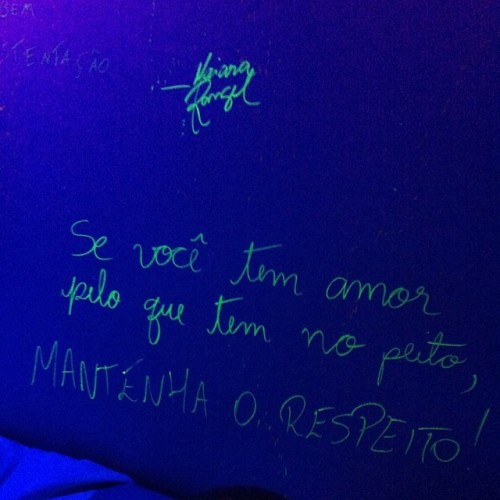 BEM
TENTAÇÃO
Rangel
Se você tem amor
pelo que tem no peito,
MANTENHA O RESPEITO!